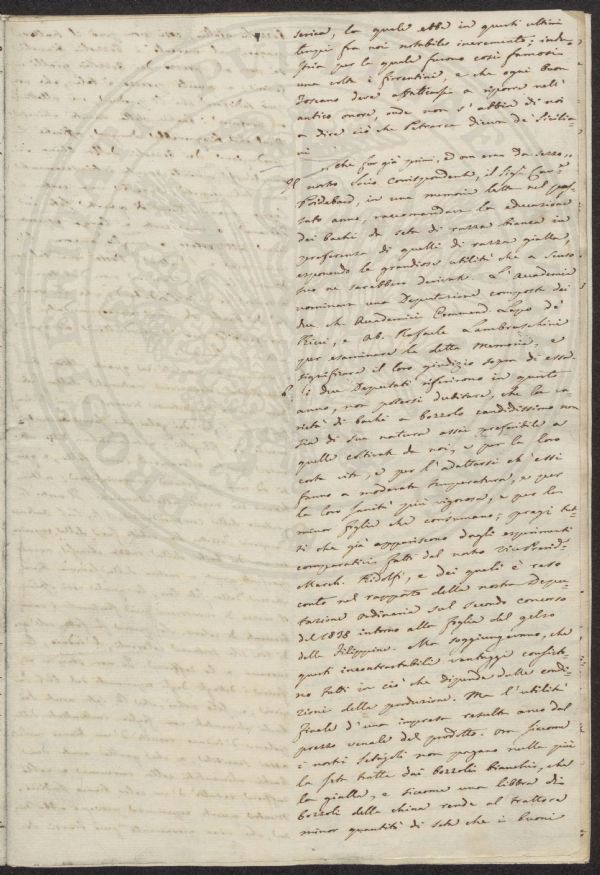 serica, la quale ebbe in questi ultimi
tempi fra noi notabile incremento; indu-
stria per la quale furono così famosi
una volta i fiorentini, e che ogni buon
Toscano deve affaticarsi a riporre nell'
antico onore, onde non s'abbia di noi
a dire ciò che Petrarca diceva de' Sicilia-
ni
"che fur già primi, ed or eran da sezzo"
Il nostro Socio corrispondente, il Sigr Cav.e
Poidebard, in una memoria letta nel pas-
sato anno, raccomandava la educazione
dei bachi da seta di razza bianca in
preferenza di quelli di razza gialla,
esponendo le grandiose utilità che a senso
suo ne sarebbero derivate. L'Accademia
nominava una Deputazione composta dei
due ch. Accademici Commend. Lapo de'
Ricci, e Ab. Raffaele Lambruschini
per esaminare la detta Memoria, e
significare il loro giudizio sopra di essa.
I due Deputati riferirono in questo
anno, non potersi dubitare, che la va-
rietà di bachi a bozzolo candidissimo non
sia di sua natura assai preferibile a
quelle coltivate da noi, e per la loro
corta vita, e per l'adattarsi ch'essi
fanno a moderata temperatura, e per
la loro sanità più vigorosa, e per la
minor foglia che consumano; pregi tut-
ti che già apparissono dagli esperimenti
comparativi fatti dal nostro Vice Presid.e
March. Ridolfi, e dei quali è reso
conto nel rapporto della nostra Depu-
tazione ordinaria sul secondo concorso
del 1838 intorno alla foglia del gelso
delle Filippine. Ma soggiungevano, che
questi incontrastabili vantaggi consisto-
no tutti in ciò che dipende dalle condi-
zioni della produzione. Ma l'utilità
finale d'una impresa resulta anco dal
prezzo venale del prodotto. Or siccome
i nostri Setajoli non pagano nulla più
la seta tratta dai bozzoli bianchi, che
la gialla, e siccome una libbra di
bozzoli della china rende al trattore
minor quantità di seta che i buoni